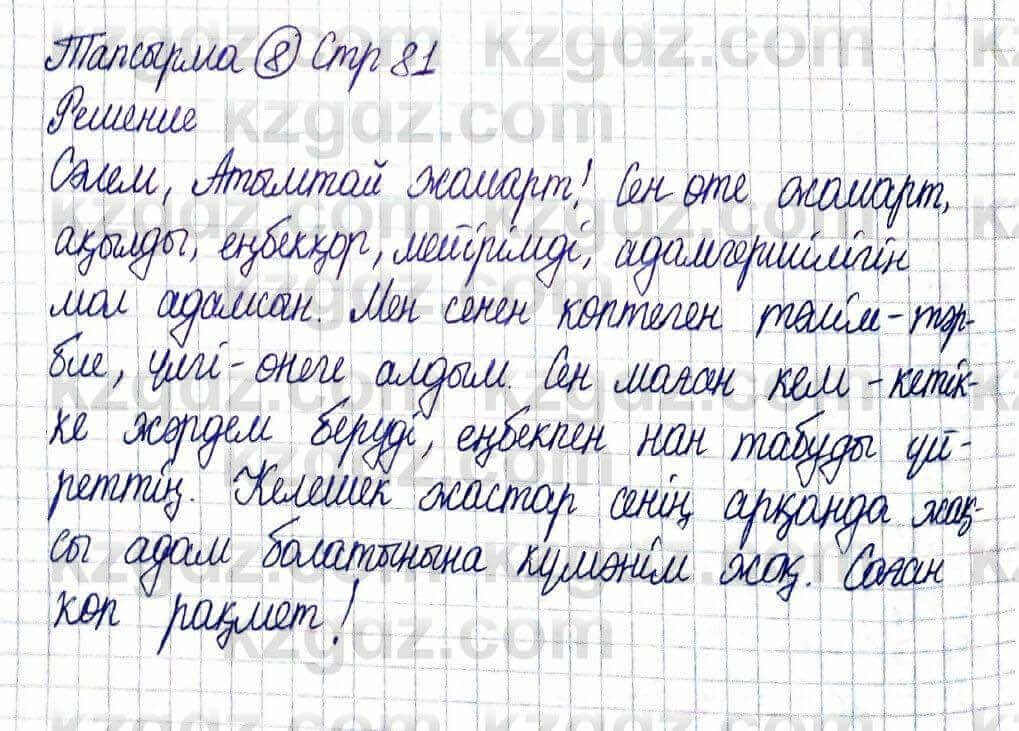 Тапсырма 8 Стр 81
Решение
Сәлем, Атымтай жомарт! Сен өте жомарт,
ақылды, еңбекқор, мейірімді, адамгершілігін
мол адамсын. Мен сенен көптеген тәлім-тәр-
бие, үлгі-өнеге алдым. Сен маған кем-кетік-
ке жәрдем беруді, еңбекпен нан табуды үй-
реттің. Келешек жастар сенің арқанда жақ-
сы адам болатынына күмәнім жоқ. Саған
көп рақмет!
kzgdz.com